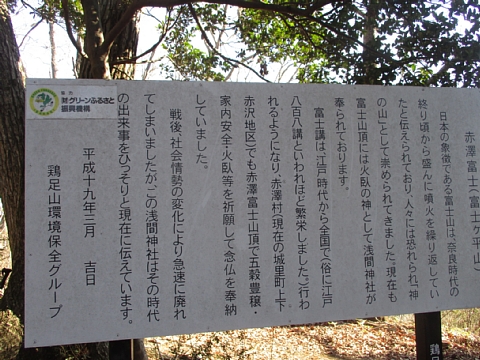 赤澤富士(富士ヶ平山)
日本の象徴である富士山は、奈良時代の
終り頃から盛んに噴火を繰り返してい
たと伝えられており、人々には恐れられ、「神
の山」として崇められてきました。現在も
富士山頂には火臥の神として浅間神社が
奉られております。
富士講は、江戸時代から全国で(俗に江戸
八百八講といわれるほど繁栄しました。)行わ
れるようになり、赤澤村(現在の城里町上下
赤沢地区)でも赤澤富士山頂で五穀豊穣・
家内安全・火臥等を祈願して念仏を奉納
していました。
戦後、社会情勢の変化により急速に廃れ
てしまいましたが、この浅間神社はその時代
の出来事をひっそりと現在に伝えています。
平成十九年三月 吉日
鶏足山環境保全グループ
協力
財グリーンふるさと
振興機構
鶏足